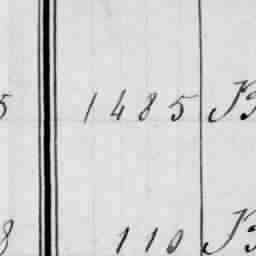 5 1485 B
8 110 B